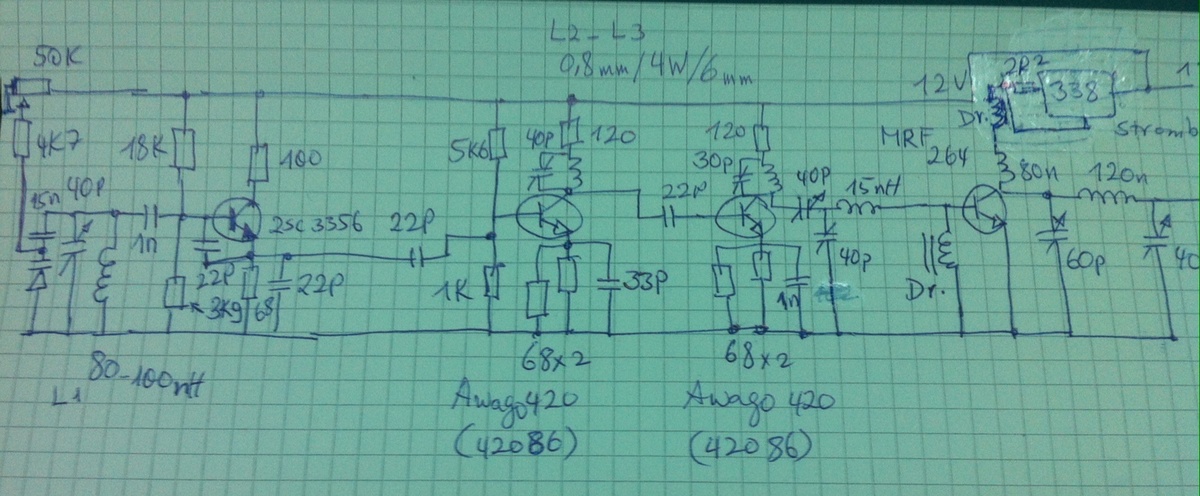 L2-L3
0,8mm/4W/6mm
50K
12V
2R2
338
1
Dr.
Stromb
4K7
18K
100
5K6
40p
120
120
30p
MRF
264
15n
40p
1n
2SC3356
22p
22p
40p
15nH
80n
120n
22p
3K9
68
22p
1K
33p
1n
40p
Dr.
60p
40
80-100nH
L1
68x2
68x2
Awago420
Awago 420
(42086)
(42086)